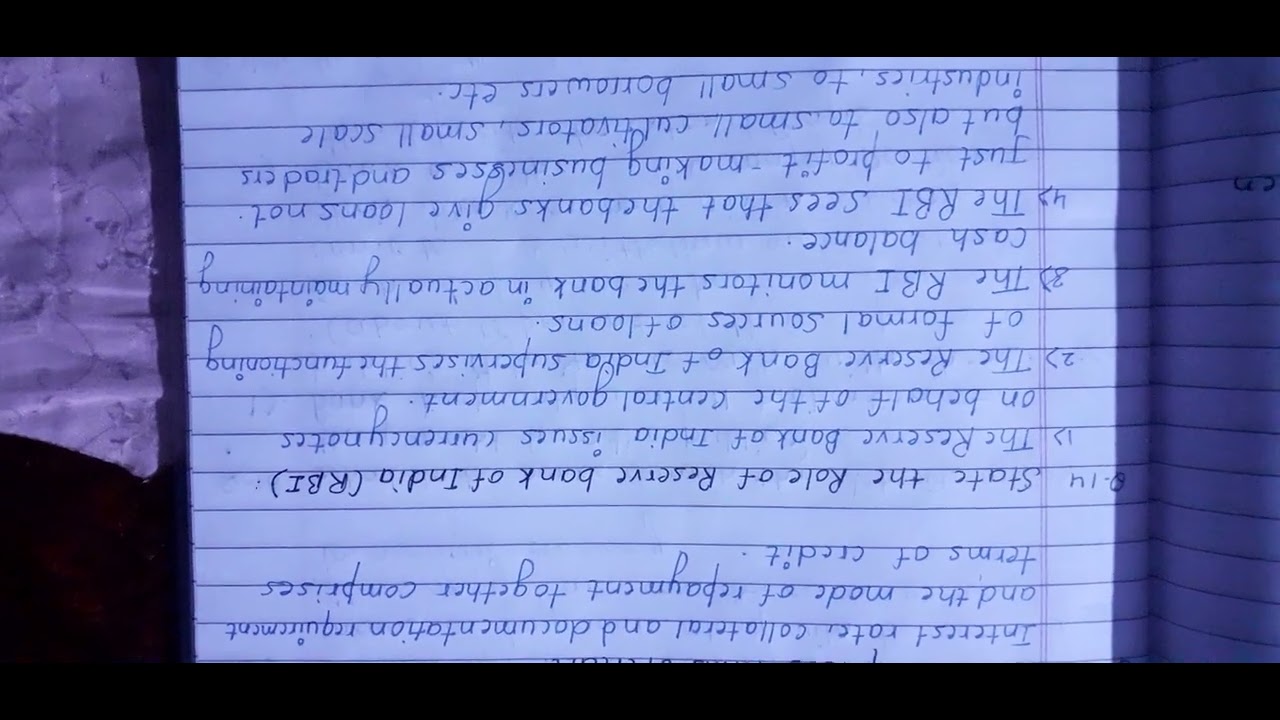 Interest rate, collateral and documentation requirement
and the mode of repayment together comprises
terms of credit.
Q.14 State the Role of Reserve bank of India (RBI).
1) The Reserve Bank of India issues currency notes
on behalf of the central government.
2) The Reserve Bank of India supervises the functioning
of formal sources of loans.
3) The RBI monitors the bank in actually maintaining
cash balance.
4) The RBI sees that the banks give loans not
Just to profit-making businesses and traders
but also to small cultivators, small scale
industries, to small borrowers etc.
en